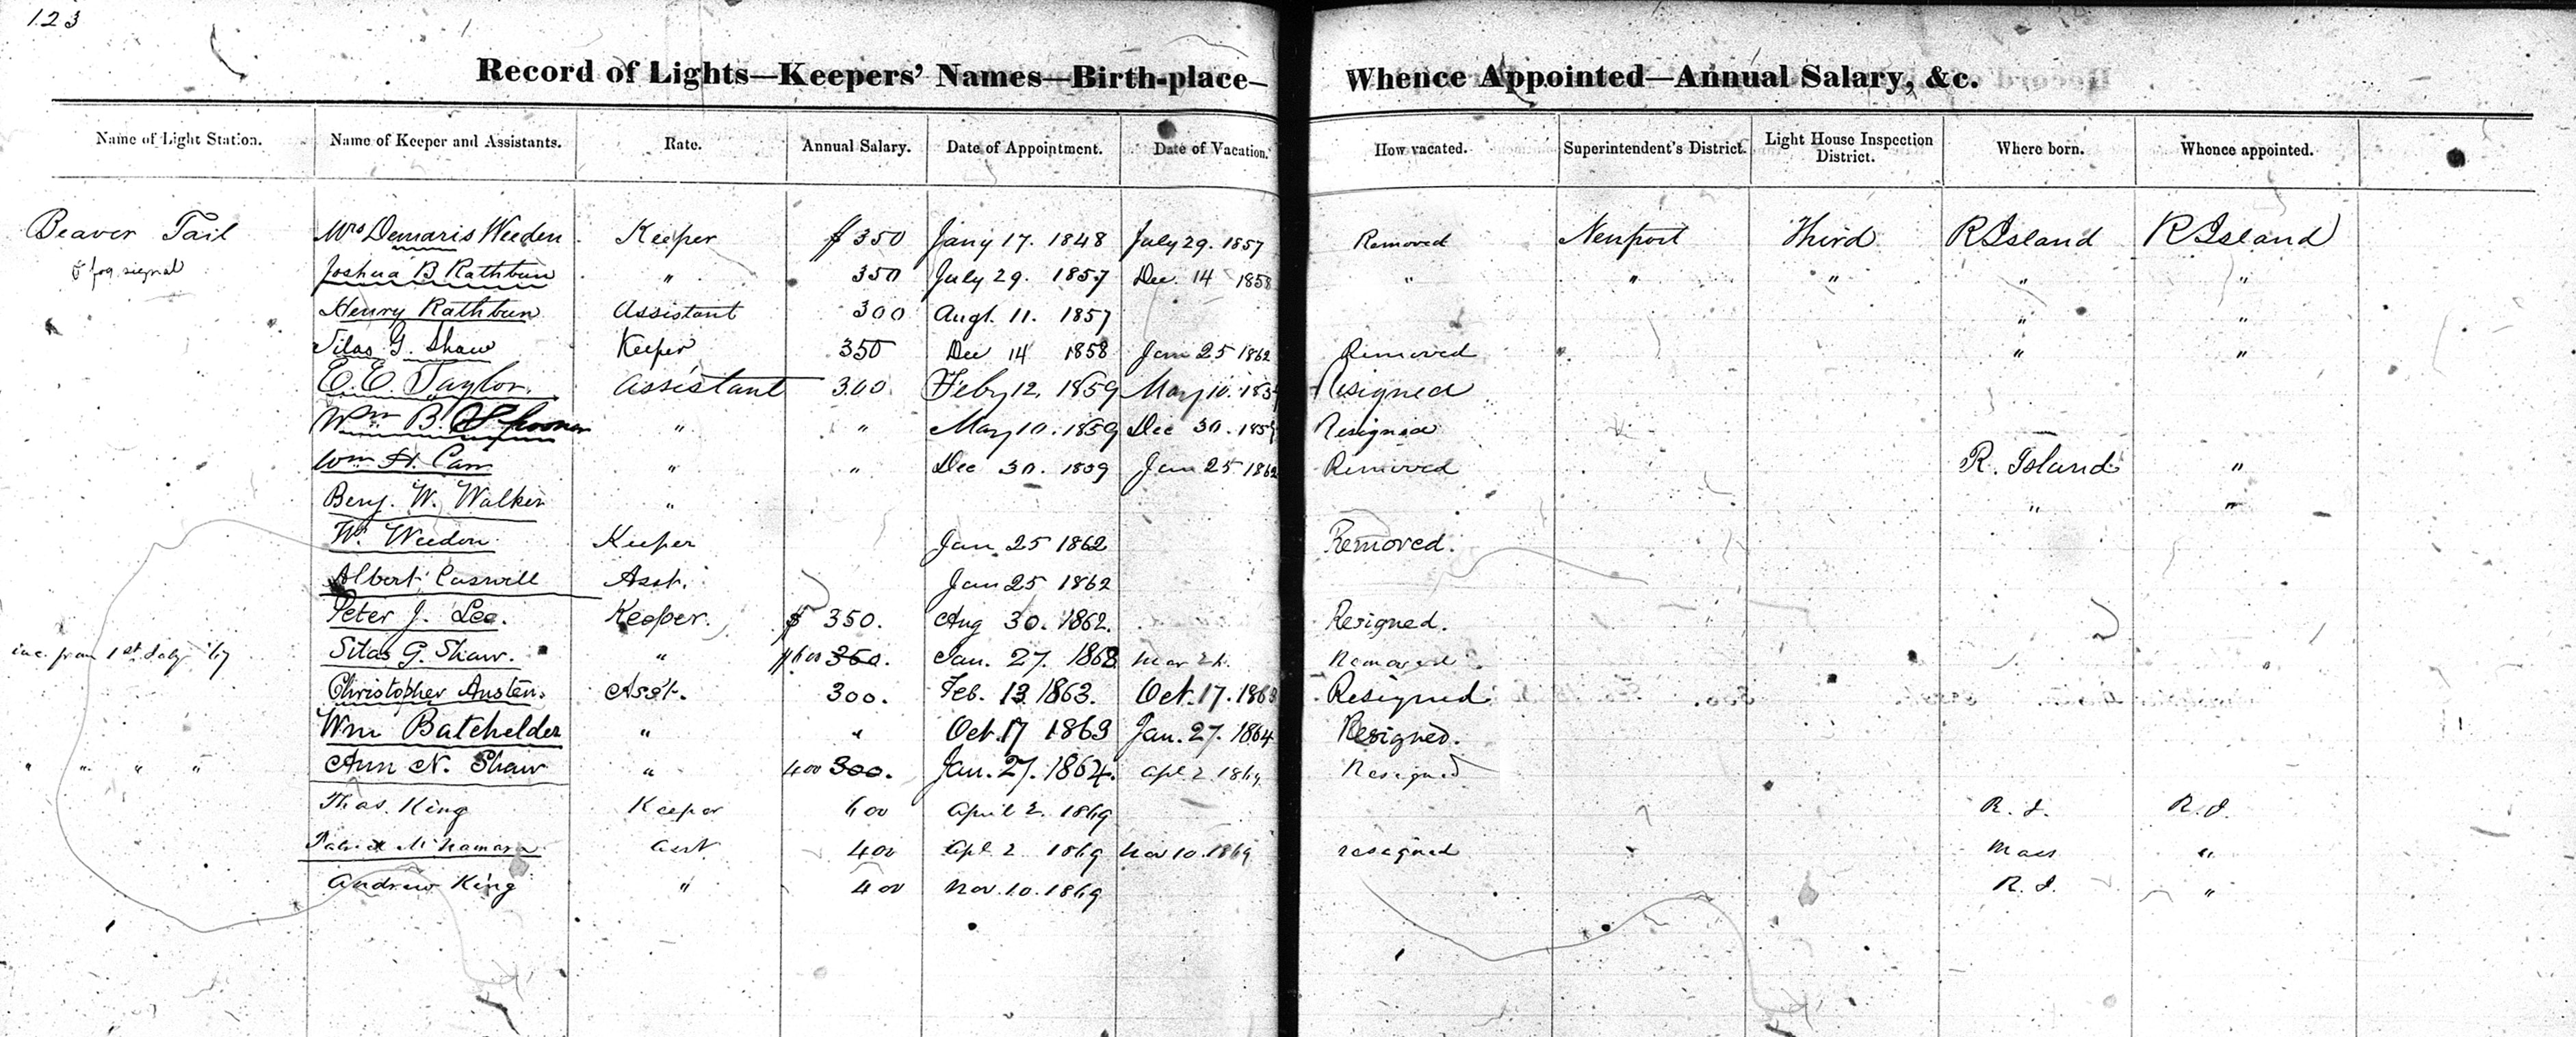 123
Record of Lights—Keepers' Names—Birth-place— Whence Appointed—Annual Salary, &c.
Name of Light Station. Name of Keeper and Assistants. Rate. Annual Salary. Date of Appointment. Date of Vacation. How vacated. Superintendent's District. Light House Inspection District. Where born. Whence appointed.
Beaver Tail Mrs Demaris Weeden Keeper $350 Jany 17. 1848 July 29. 1857 Removed Newport Third R Island R Island
& fog signal Joshua B Rathbun " 350 July 29. 1857 Dec. 14 1858 " " " " "
Henry Rathbun Assistant 300 Augt. 11. 1857 " "
Silas G. Shaw Keeper 350 Dec 14 1858 Jan 25 1862 Removed " "
E. E. Taylor. Assistant 300 Feby 12, 1859 May 10. Resigned
Wm B. Spooner " " May 10. 1859 Dec 30. 1859 Resigned
Wm H. Carr " " Dec 30. 1859 Jan 25 1862 Removed R. Island "
Benj. W. Walker " " "
W. Weeden Keeper Jan 25 1862 Removed.
Albert Caswell Asst. Jan 25 1862
Peter J. Lee. Keeper. $ 350. Aug 30. 1862. Resigned.
inc. from 1st July '67 Silas G. Shaw. " $600 350. Jan. 27. 1863 Mar Removed
Christopher Austen. Asst. 300. Feb. 13 1863. Oct. 17. 1863 Resigned
Wm Batchelder " " Oct. 17 1863 Jan. 27. 1864 Resigned.
" " " " Ann N. Shaw " 400 300. Jan. 27. 1864. Apl 2 1869 Resigned
Thos. King Keeper 600 April 2. 1869 R. I. R. I.
Patrick McNamara Asst. 400 Apl 2 1869 Nov 10. 1869 resigned Mass "
Andrew King " 400 Nov. 10. 1869 R. I. "